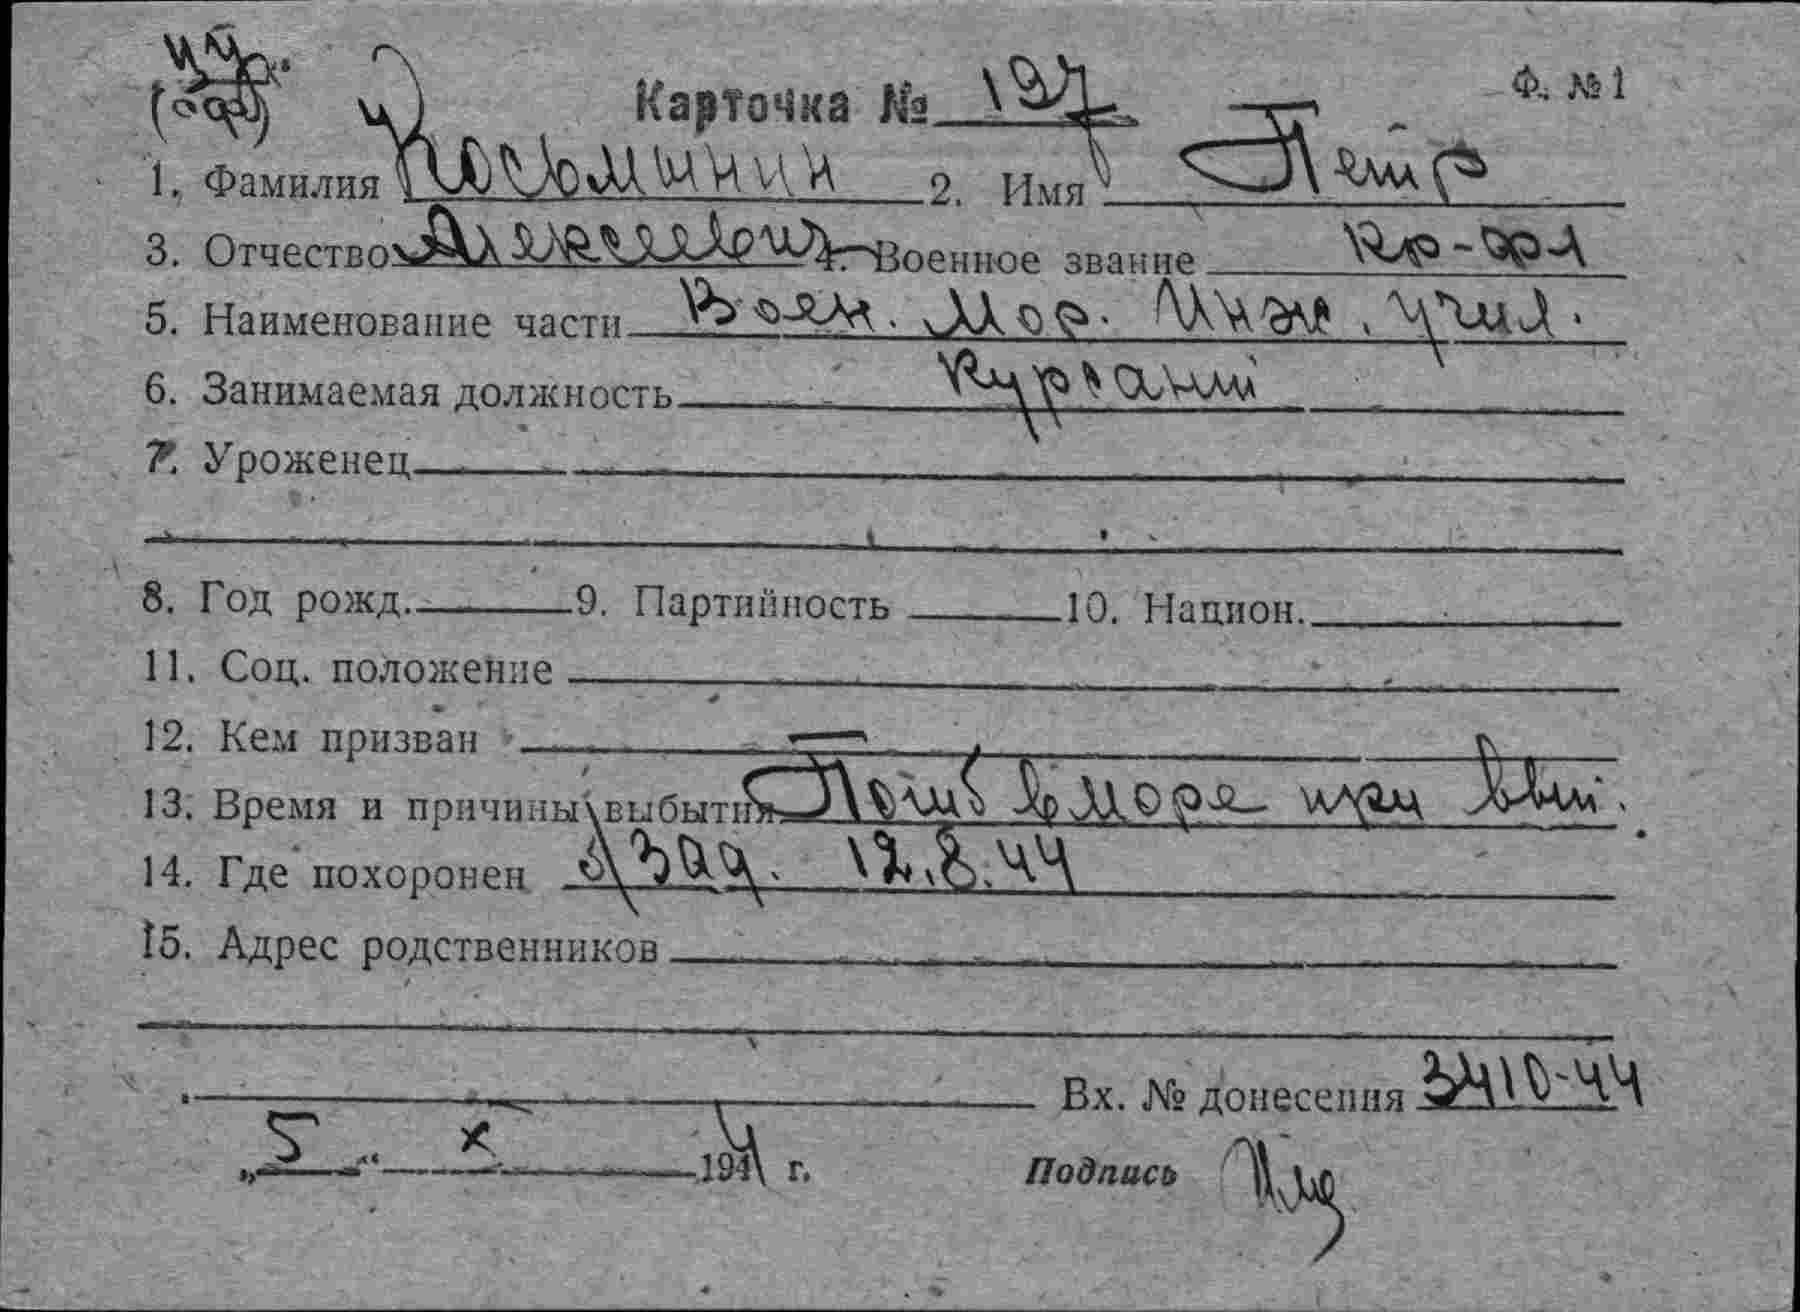 ЦУ
(офф)
Карточка № 197
Ф. № 1
1. Фамилия Косьминин 2. Имя Петр
3. Отчество Алексеевич 4. Военное звание кр-фл
5. Наименование части Воен. Мор. Инж. Учил.
6. Занимаемая должность Курсант
7. Уроженец
8. Год рожд. 9. Партийность 10. Национ.
11. Соц. положение
12. Кем призван
13. Время и причины выбытия Погиб в море при вып.
14. Где похоронен б/зад. 12.8.44
15. Адрес родственников
Вх. № донесения 3410-44
„5“ X 1944 г.
Подпись